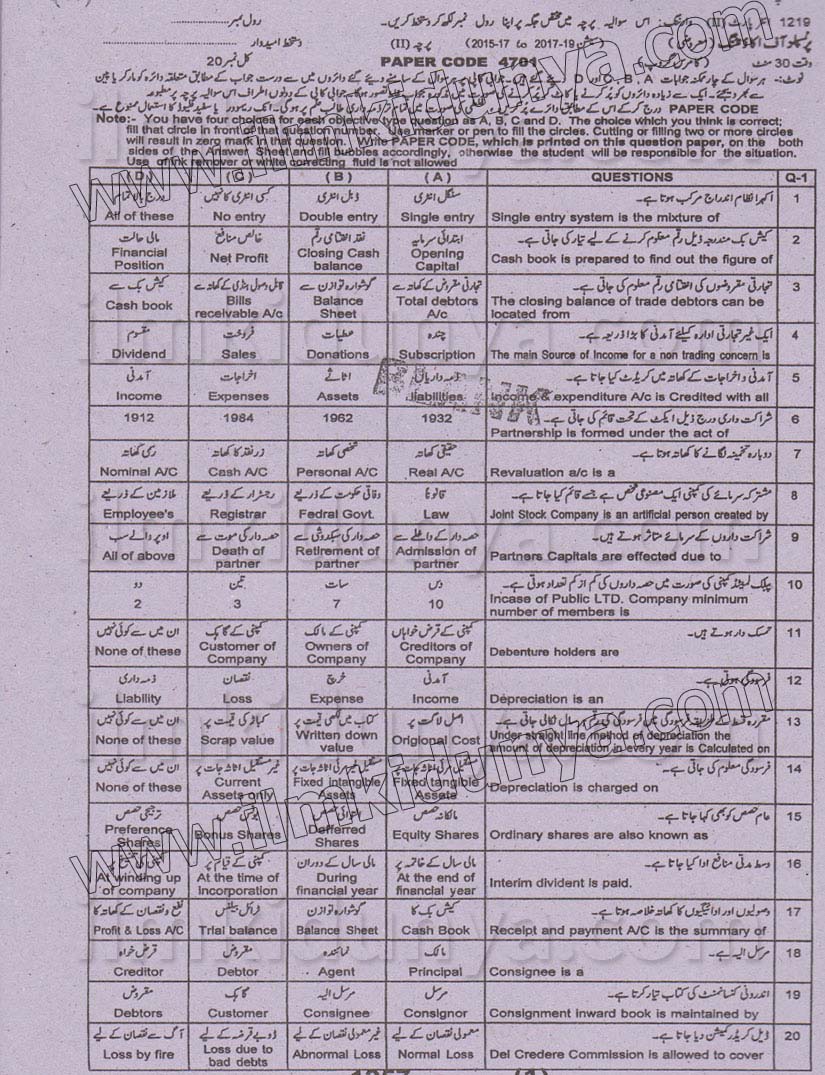 1219
رول نمبر
(سیشن 2015-17 to 2017-19)
پرچہ (II)
دستخط امیدوار
وقت 30 منٹ
PAPER CODE 4701
کل نمبر 20
PAPER CODE
Note:- You have four choices for each objective type question as A, B, C and D. The choice which you think is correct;
fill that circle in front of that question number. Use marker or pen to fill the circles. Cutting or filling two or more circles
will result in zero mark in that question. Write PAPER CODE, which is printed on this question paper, on the both
sides of the Answer Sheet and fill bubbles accordingly, otherwise the student will be responsible for the situation.
Use of ink remover or white correcting fluid is not allowed
(D) (C) (B) (A) QUESTIONS Q-1
درج بالا تمام کوئی انٹری نہیں ڈبل انٹری سنگل انٹری اکہرا نظام اندراج مرکب ہوتا ہے۔ 1
All of these No entry Double entry Single entry Single entry system is the mixture of
مالی حالت خالص منافع نقد اختتامی رقم ابتدائی سرمایہ کیش بک مندرجہ ذیل رقم معلوم کرنے کے لیے تیار کی جاتی ہے۔ 2
Financial Position Net Profit Closing Cash balance Opening Capital Cash book is prepared to find out the figure of
کیش بک سے قابل وصول ہنڈی کے کھاتہ سے گوشوارہ توازن سے تجارتی مقروض کے کھاتہ سے تجارتی مقروضوں کی اختتامی رقم معلوم کی جاتی ہے۔ 3
Cash book Bills receivable A/c Balance Sheet Total debtors A/c The closing balance of trade debtors can be located from
مقسوم فروخت عطیات چندہ ایک غیر تجارتی ادارہ کیلئے آمدنی کا بڑا ذریعہ ہے۔ 4
Dividend Sales Donations Subscription The main Source of Income for a non trading concern is
آمدنی اخراجات اثاثے ذمہ داریاں آمدنی و اخراجات کے کھاتہ میں کریڈٹ کیا جاتا ہے۔ 5
Income Expenses Assets liabilities Income & expenditure A/c is Credited with all
1912 1984 1962 1932 شراکت داری درج ذیل ایکٹ کے تحت قائم کی جاتی ہے۔ 6
Partnership is formed under the act of
رسمی کھاتہ زرنقد کا کھاتہ شخصی کھاتہ حقیقی کھاتہ دوبارہ تخمینہ لگانے کا کھاتہ ہوتا ہے۔ 7
Nominal A/C Cash A/C Personal A/C Real A/C Revaluation a/c is a
ملازمین کے ذریعے رجسٹرار کے ذریعے وفاقی حکومت کے ذریعے قانونا مشترکہ سرمائے کی کمپنی ایک مصنوعی شخص ہے جسے قائم کیا جاتا ہے۔ 8
Employee's Registrar Fedral Govt. Law Joint Stock Company is an artificial person created by
اوپر والے سب حصہ دار کی موت سے حصہ دار کی سبکدوشی سے حصہ دار کے داخلے سے شراکت داروں کے سرمائے متاثر ہوتے ہیں۔ 9
All of above Death of partner Retirement of partner Admission of partner Partners Capitals are effected due to
دو تین سات دس پبلک لمیٹڈ کمپنی کی صورت میں حصہ داروں کی کم از کم تعداد ہوتی ہے۔ 10
2 3 7 10 Incase of Public LTD. Company minimum number of members is
ان میں سے کوئی نہیں کمپنی کے گاہک کمپنی کے مالک کمپنی کے قرض خواہاں تمسک دار ہوتے ہیں۔ 11
None of these Customer of Company Owners of Company Creditors of Company Debenture holders are
ذمہ داری نقصان خرچ آمدنی فرسودگی ہوتی ہے۔ 12
Liability Loss Expense Income Depreciation is an
ان میں سے کوئی نہیں کباڑ کی قیمت پر کتاب میں لکھی قیمت پر اصل لاگت پر مقررہ قسط کے طریقہ فرسودگی میں فرسودگی کی رقم ہر سال نکالی جاتی ہے۔ 13
None of these Scrap value Written down value Origional Cost Under straight line method of depreciation the amount of depreciation in every year is Calculated on
ان میں سے کوئی نہیں فرسودگی معلوم کی جاتی ہے۔ 14
None of these Current Assets only Fixed intangible Assets Fixed tangible Assets Depreciation is charged on
ترجیحی حصص بونس حصص التوائی حصص مالکانہ حصص عام حصص کو بھی کہا جاتا ہے۔ 15
Preference Shares Bonus Shares Defferred Shares Equity Shares Ordinary shares are also known as
کمپنی کے قیام پر مالی سال کے دوران مالی سال کے خاتمہ پر وسط مدتی منافع ادا کیا جاتا ہے۔ 16
At winding up of company At the time of Incorporation During financial year At the end of financial year Interim divident is paid.
نفع و نقصان کے کھاتہ کا ٹرائل بیلنس گوشوارہ توازن کیش بک کا وصولیوں اور ادائیگیوں کا کھاتہ خلاصہ ہوتا ہے۔ 17
Profit & Loss A/C Trial balance Balance Sheet Cash Book Receipt and payment A/C is the summary of
قرض خواہ مقروض نمائندہ مالک مرسل الیہ ہے۔ 18
Creditor Debtor Agent Principal Consignee is a
مقروض گاہک مرسل الیہ مرسل اندرونی کنسائنمنٹ کی کتاب تیار کرتا ہے۔ 19
Debtors Customer Consignee Consignor Consignment inward book is maintained by
آگ سے نقصان کے لیے ڈوبے قرضہ کے لیے غیر معمولی نقصان کے لیے معمولی نقصان کے لیے ڈیل کریڈر کمیشن دیا جاتا ہے۔ 20
Loss by fire Loss due to bad debts Abnormal Loss Normal Loss Del Credere Commission is allowed to cover
www.ilmkidunya.com
www.ilmkidunya.com